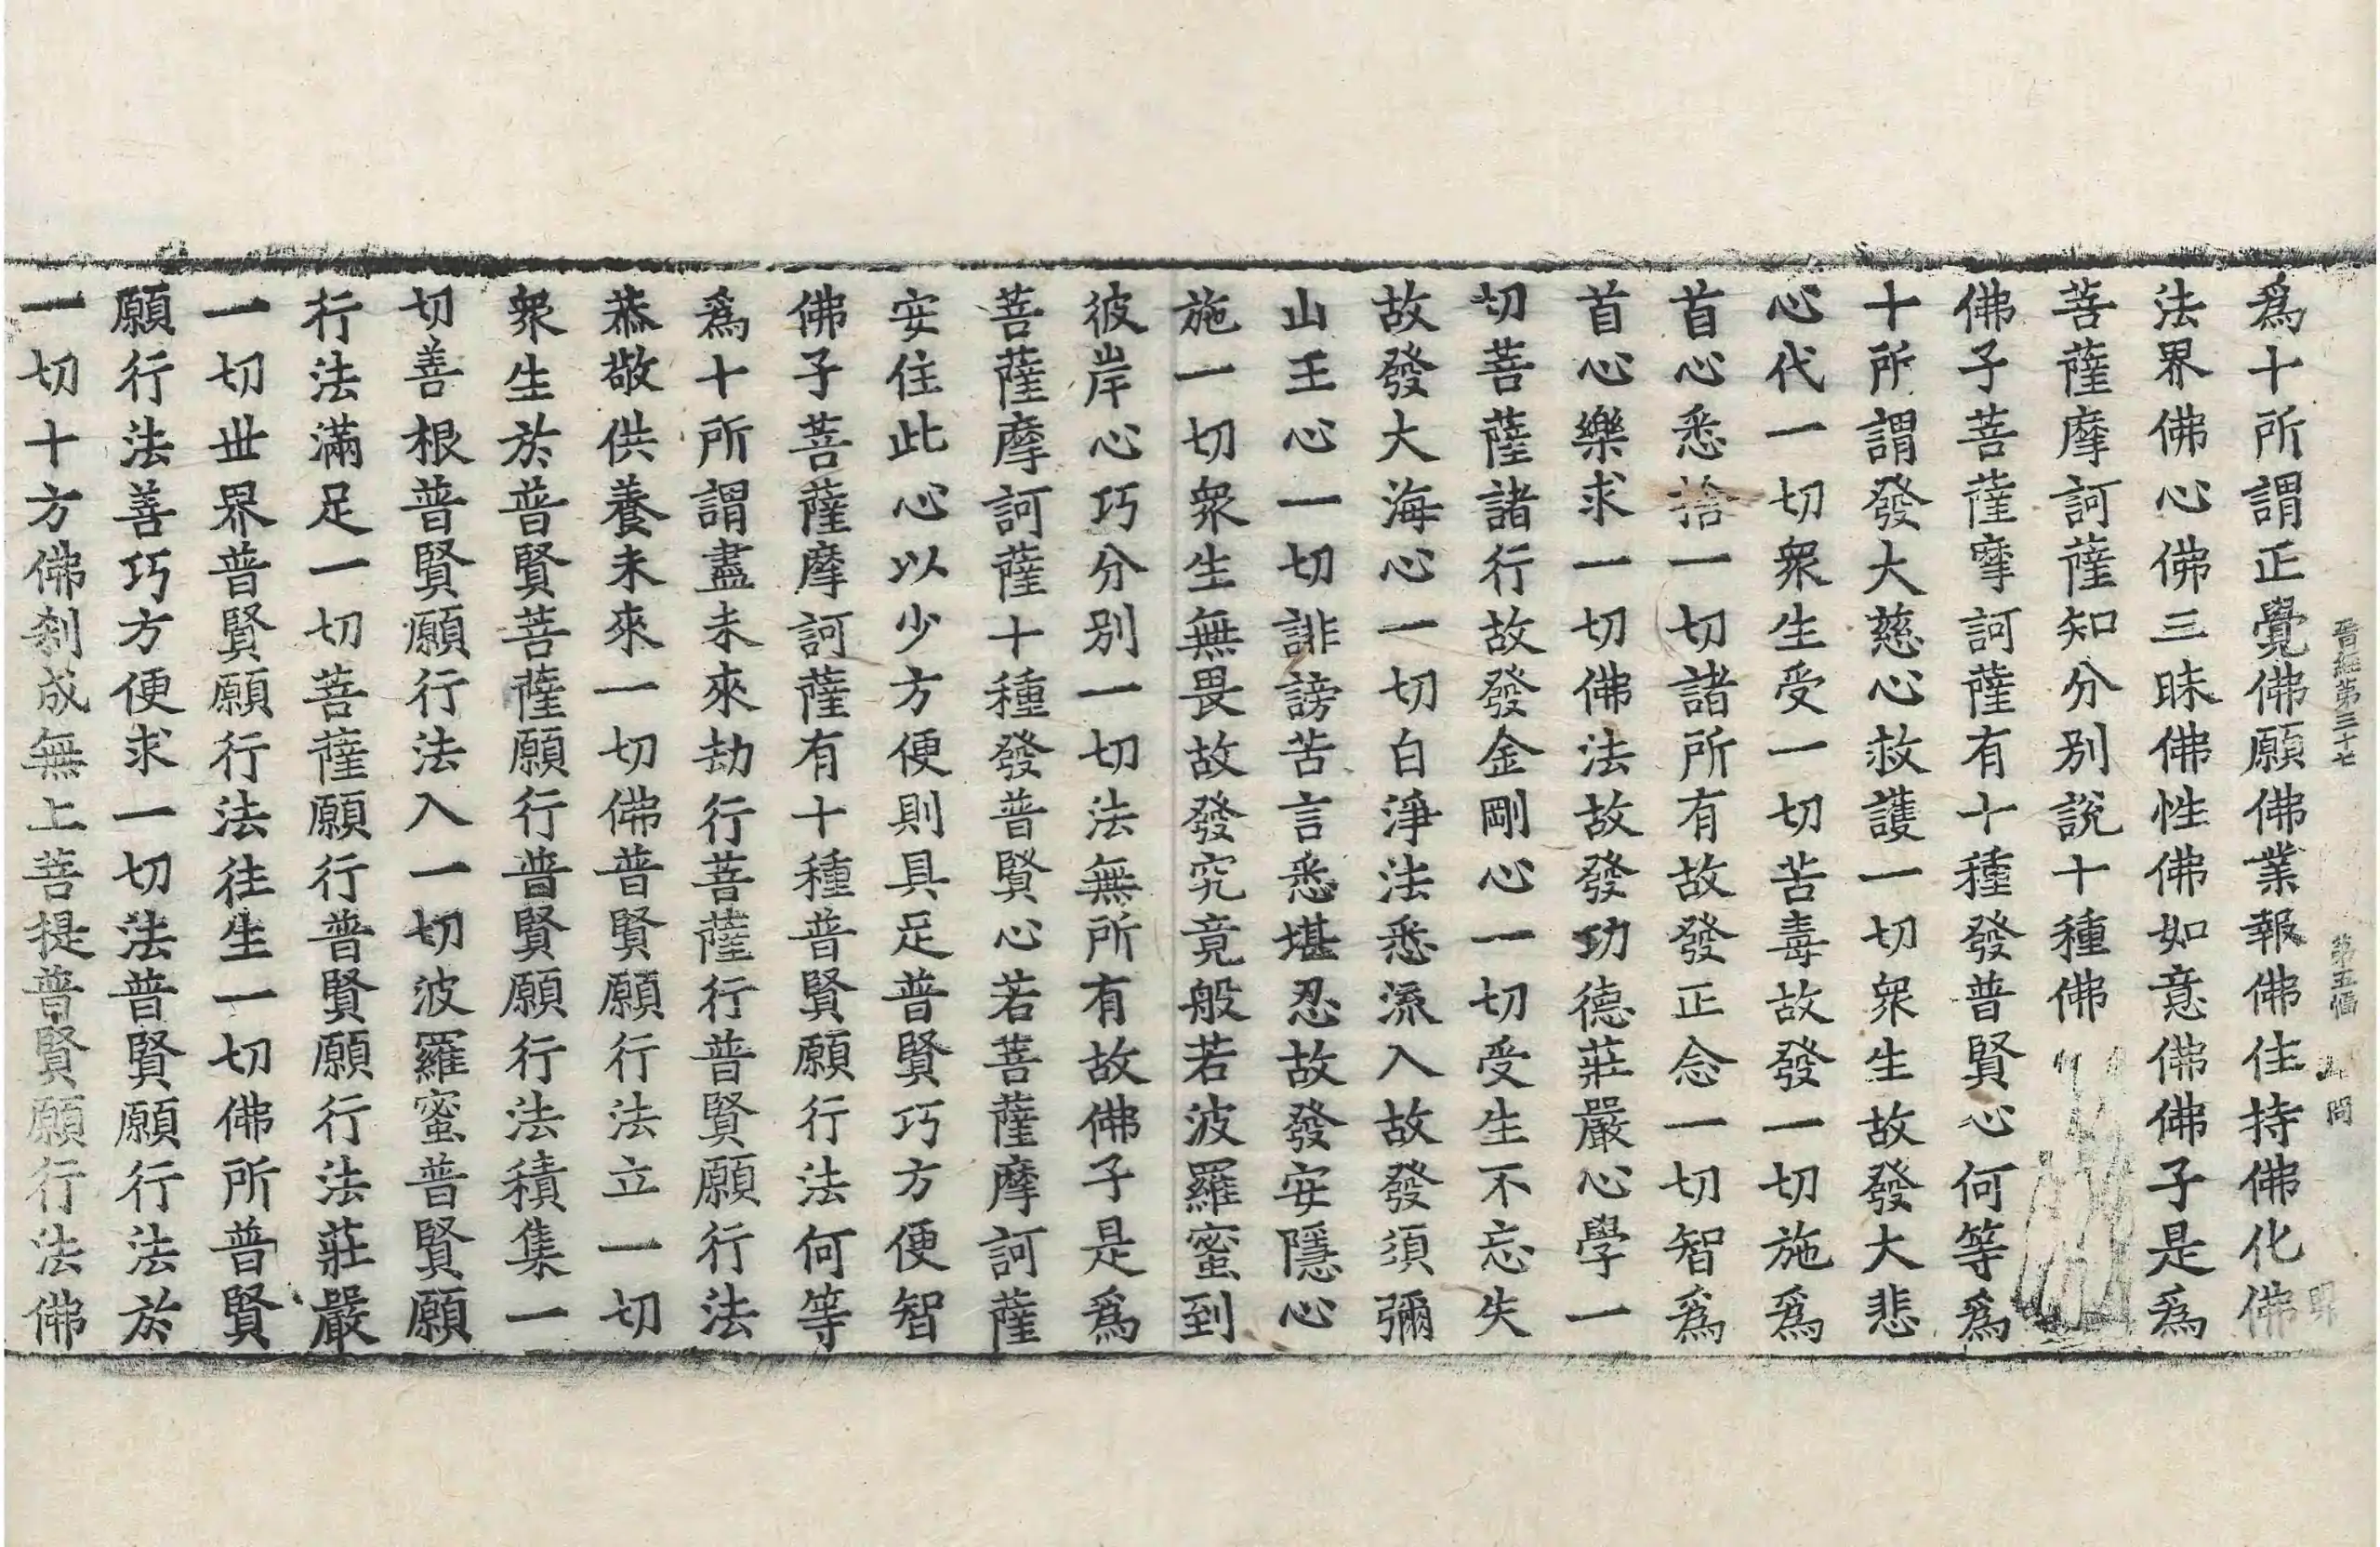 晉經第三十七 第五幅 問
爲十所謂正覺佛願佛業報佛住持佛化佛
法界佛心佛三昧佛性佛如意佛佛子是爲
菩薩摩訶薩知分別說十種佛
佛子菩薩摩訶薩有十種發普賢心何等爲
十所謂發大慈心救護一切衆生故發大悲
心代一切衆生受一切苦毒故發一切施爲
首心悉捨一切諸所有故發正念一切智爲
首心樂求一切佛法故發功德莊嚴心學一
切菩薩諸行故發金剛心一切受生不忘失
故發大海心一切白淨法悉流入故發須彌
山王心一切誹謗苦言悉堪忍故發安隱心
施一切衆生無畏故發究竟般若波羅蜜到
彼岸心巧分別一切法無所有故佛子是爲
菩薩摩訶薩十種發普賢心若菩薩摩訶薩
安住此心以少方便則具足普賢巧方便智
佛子菩薩摩訶薩有十種普賢願行法何等
爲十所謂盡未來劫行菩薩行普賢願行法
恭敬供養未來一切佛普賢願行法立一切
衆生於普賢菩薩願行普賢願行法積集一
切善根普賢願行法入一切波羅蜜普賢願
行法滿足一切菩薩願行普賢願行法莊嚴
一切世界普賢願行法往生一切佛所普賢
願行法善巧方便求一切法普賢願行法於
一切十方佛刹成無上菩提普賢願行法佛